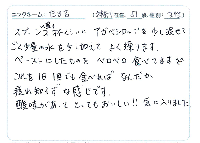 ニックネーム だるま (お歳) 年齢 51 歳 性別 女性
スプーン1杯くらいに アガベシロップを少し混ぜて
ごく少量の水を少し加えて よく練ります。
ペースト状にしたものを ペロペロ 食べてますが
これを1日1回でも食べれば なんだか
疲れ知らずな感じです。
酸味があって とってもおいしい!! 気に入りました